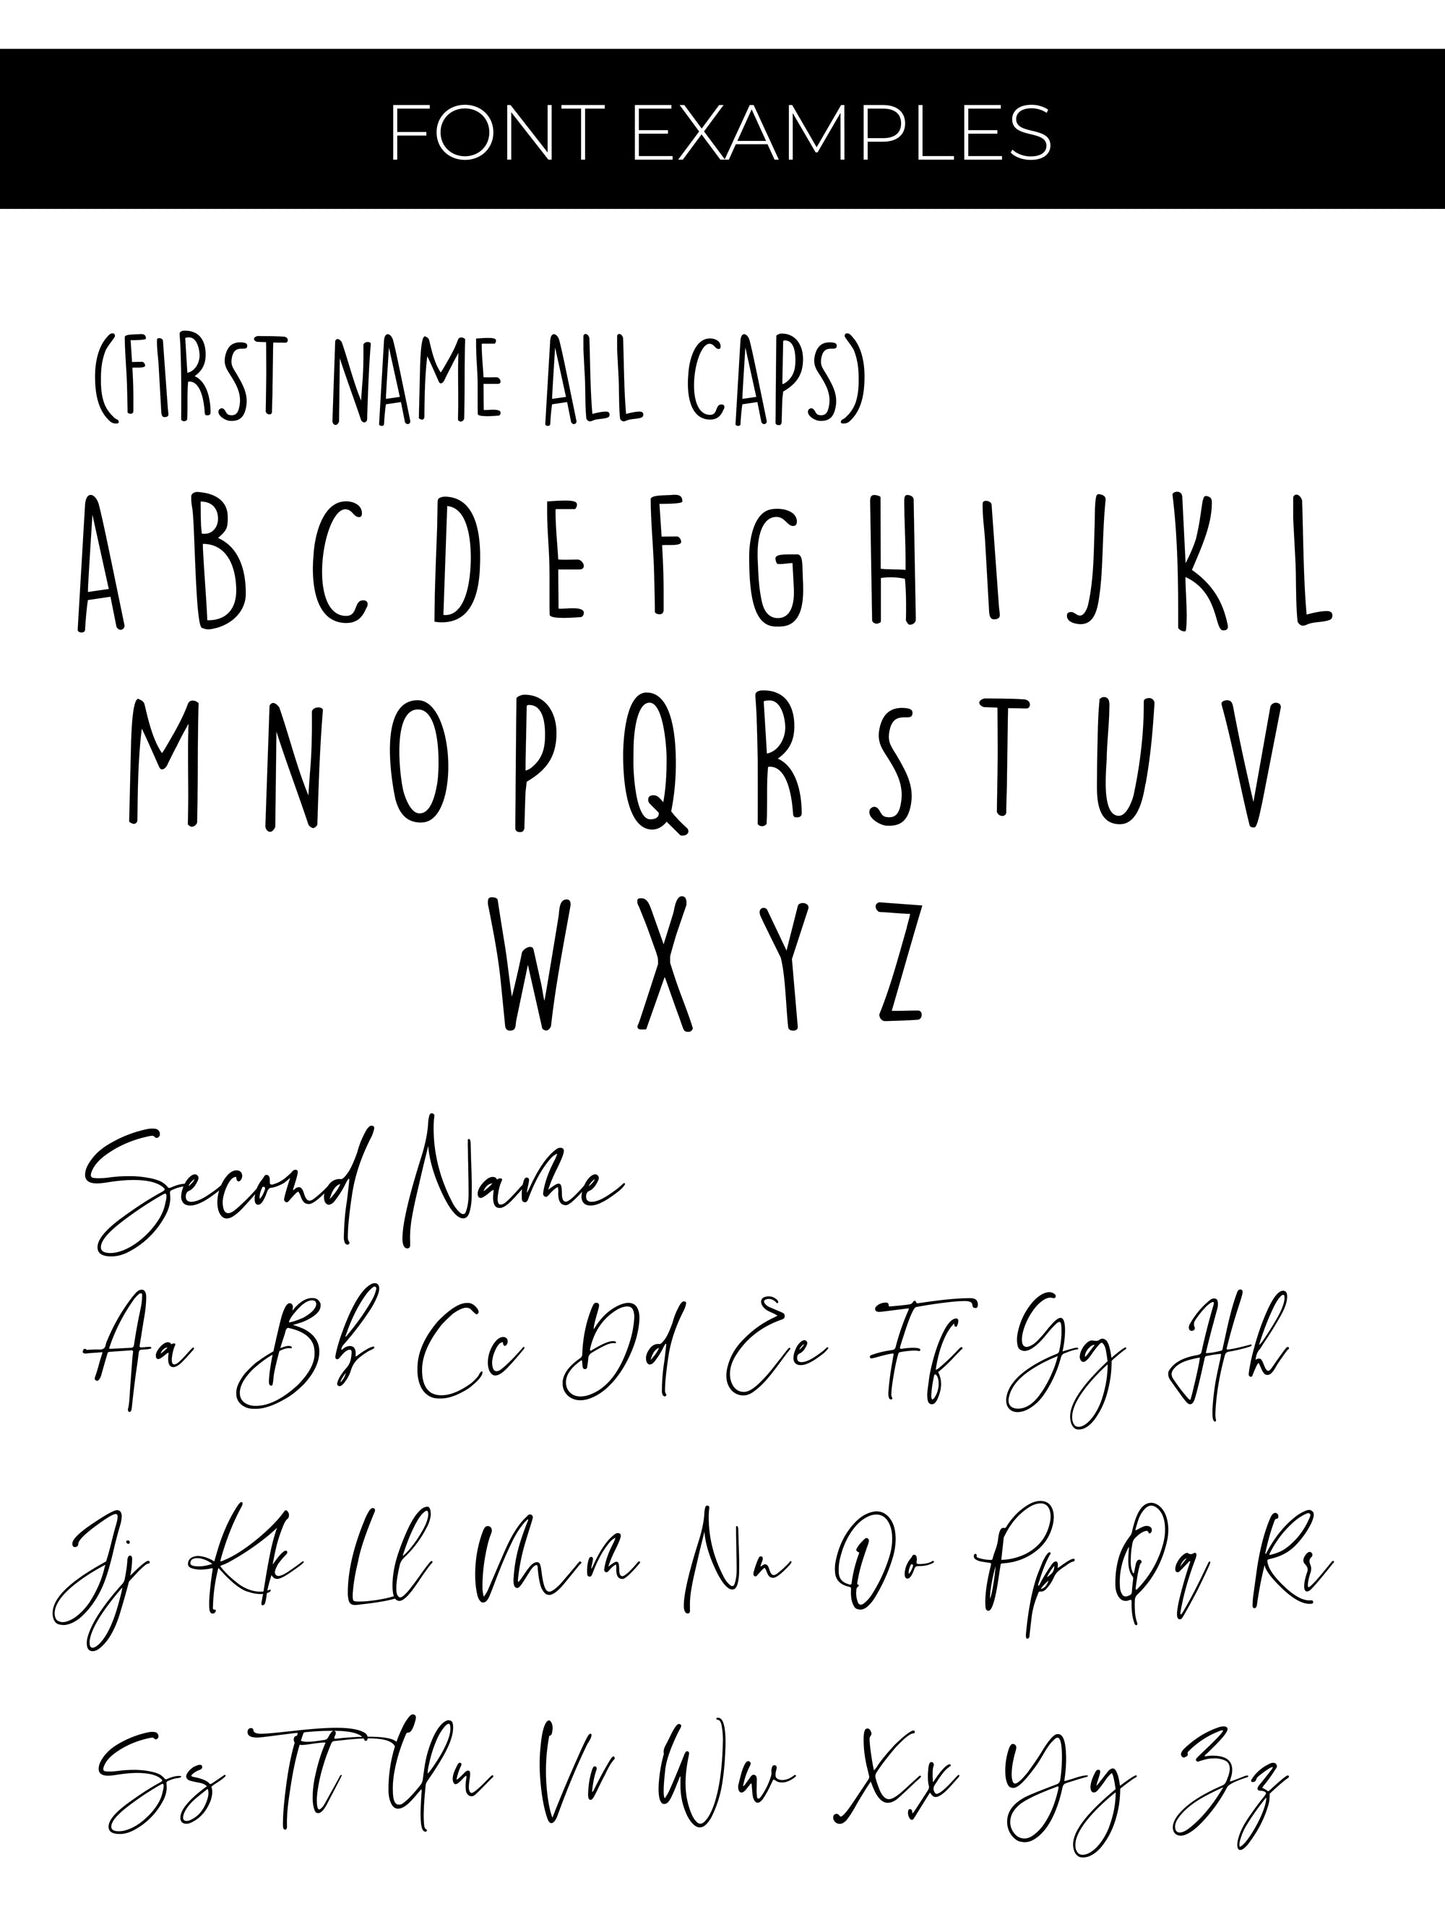 FONT EXAMPLES
(FIRST NAME ALL CAPS)
A B C D E F G H I J K L
M N O P Q R S T U V
W X Y Z
Second Name
Aa Bb Cc Dd Ee Ff Gg Hh
Jj Kk Ll Mm Nn Oo Pp Qq Rr
Ss Tt Uu Vv Ww Xx Yy Zz